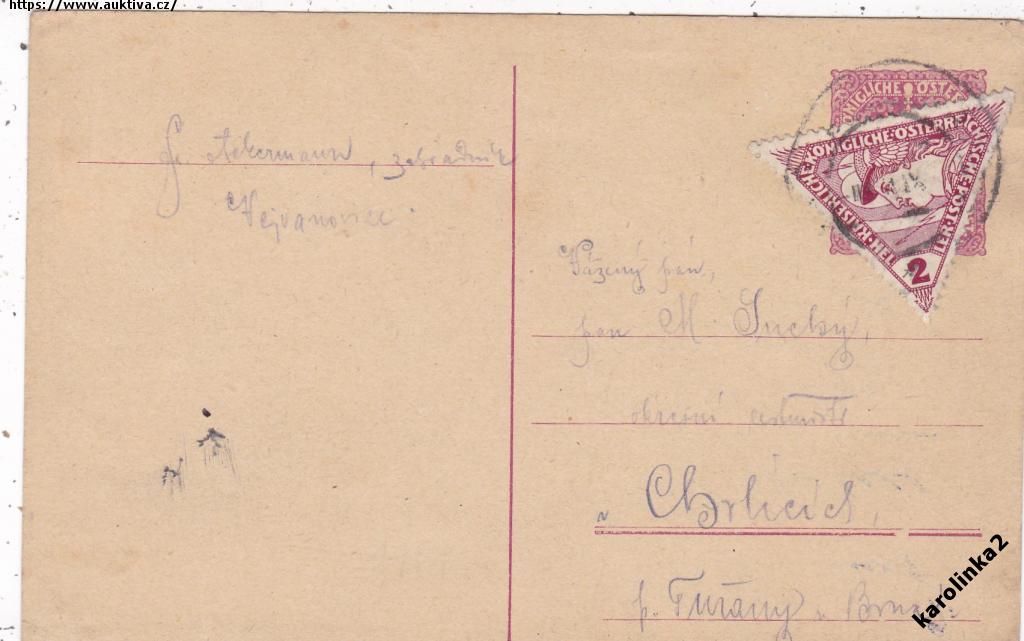 https://www.auktiva.cz/
Fr. Ackermann, zahradník
Vejvanovic
KÖNIGLICHE ÖSTER
KAISERLICHE·KÖNIGLICHE·ÖSTERREICHISCHE·POST
2
Vážený pán,
pan M. Suchý,
okresní cestmistr
v Chrlicích,
p. Tuřany u Brna
karolinka2